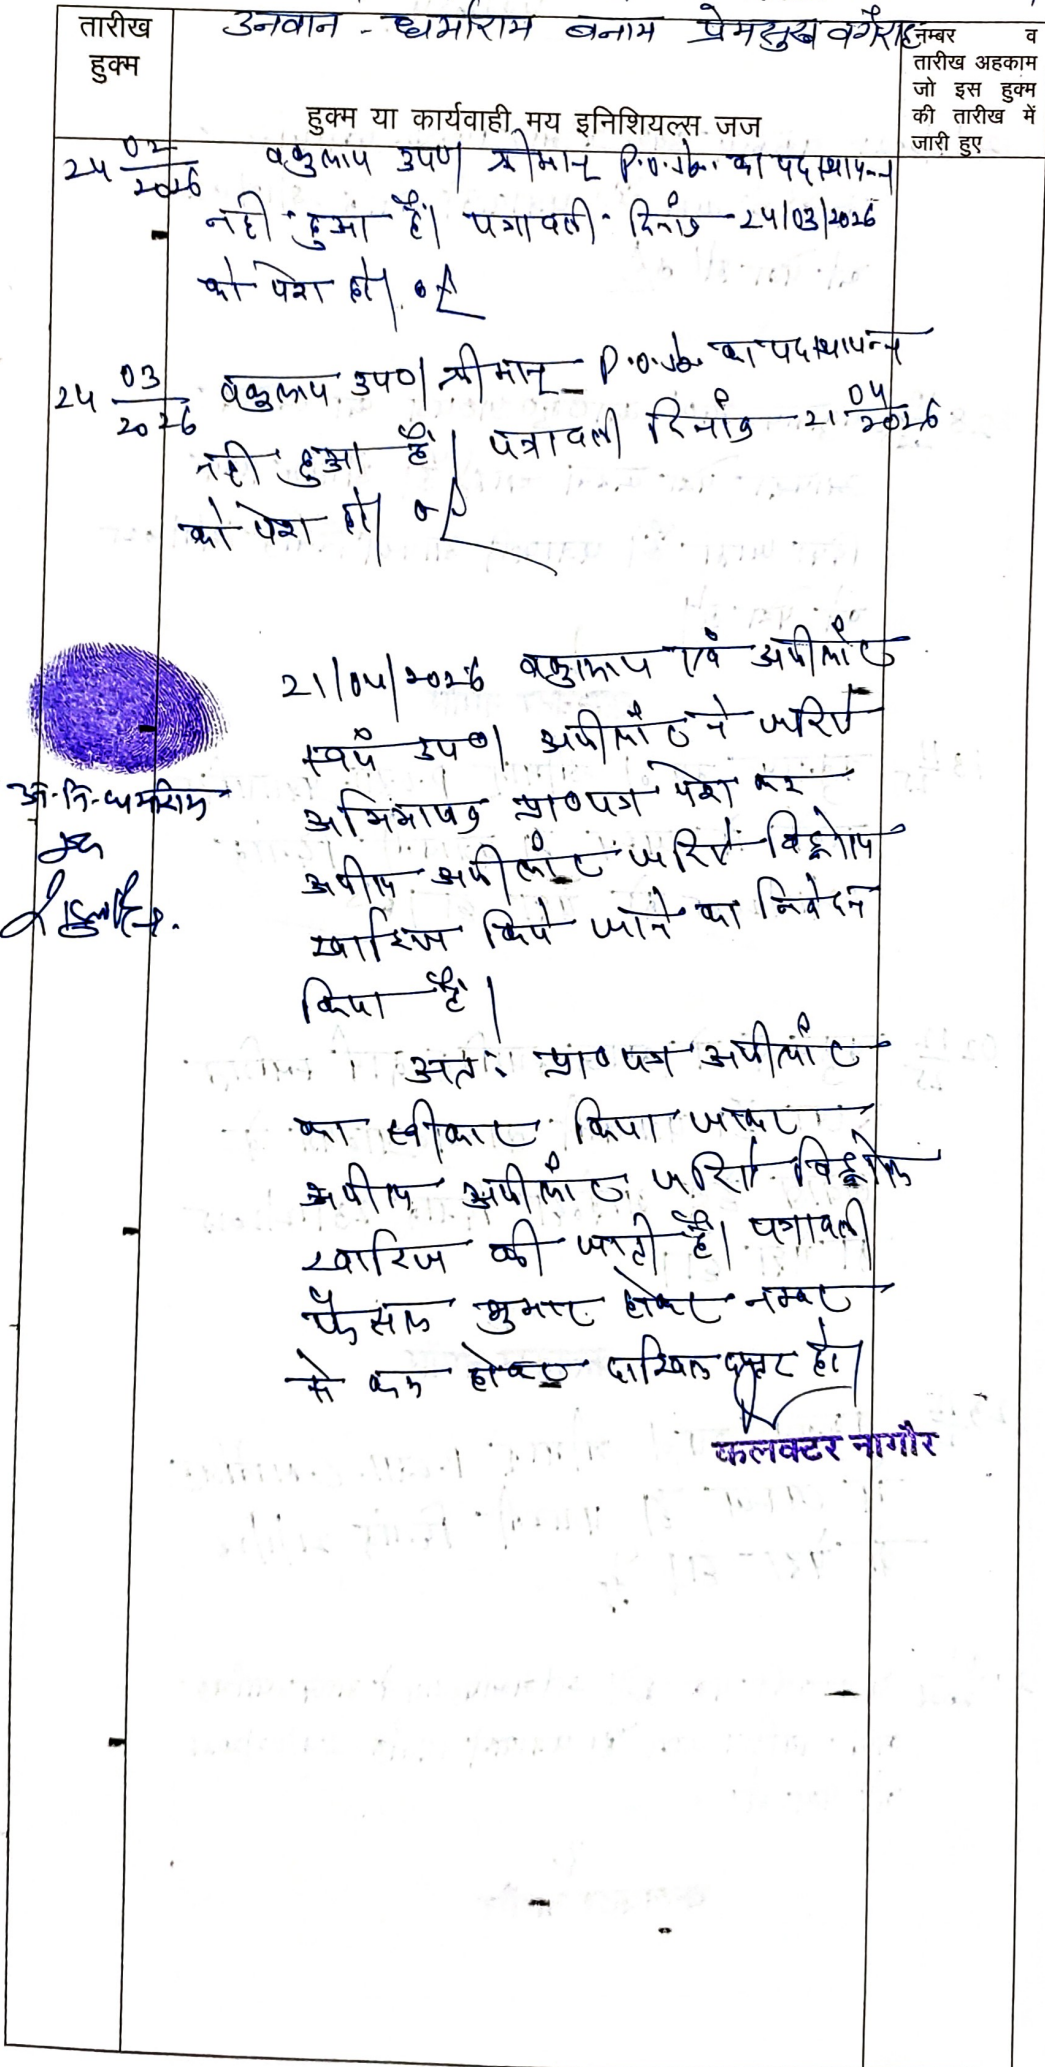 तारीख
हुक्म
उनवान - धर्माराम बनाम प्रेमसुख वगैराह
हुक्म या कार्यवाही मय इनिशियल्स जज
नम्बर व
तारीख अहकाम
जो इस हुक्म
की तारीख में
जारी हुए
24 02/2026 वकुलाय उप0। श्रीमान् P.O. का पदस्थापन्न
नही हुआ है। पत्रावली दिनांक 24/03/2026
को पेश हो।
24 03/2026 वकुलाय उप0। श्रीमान् P.O. का पदस्थापन्न
नही हुआ है। पत्रावली दिनांक 21 04/2026
को पेश हो।
21/04/2026 वकुलाय एवं अपीलांट
स्वयं उप0। अपीलांट ने जरिये
अभिभाषक प्रा0पत्र पेश कर
अपील अपीलांट जरिये विड्रोल
खारिज किये जाने का निवेदन
किया है।
अं.नि. धर्माराम
अतः प्रा0पत्र अपीलांट
का स्वीकार किया जाकर
अपील अपीलांट जरिये विड्रोल
खारिज की जाती है। पत्रावली
फैसल शुमार होकर नम्बर
से कम होकर दाखिल दफ्तर हो।
कलक्टर नागौर